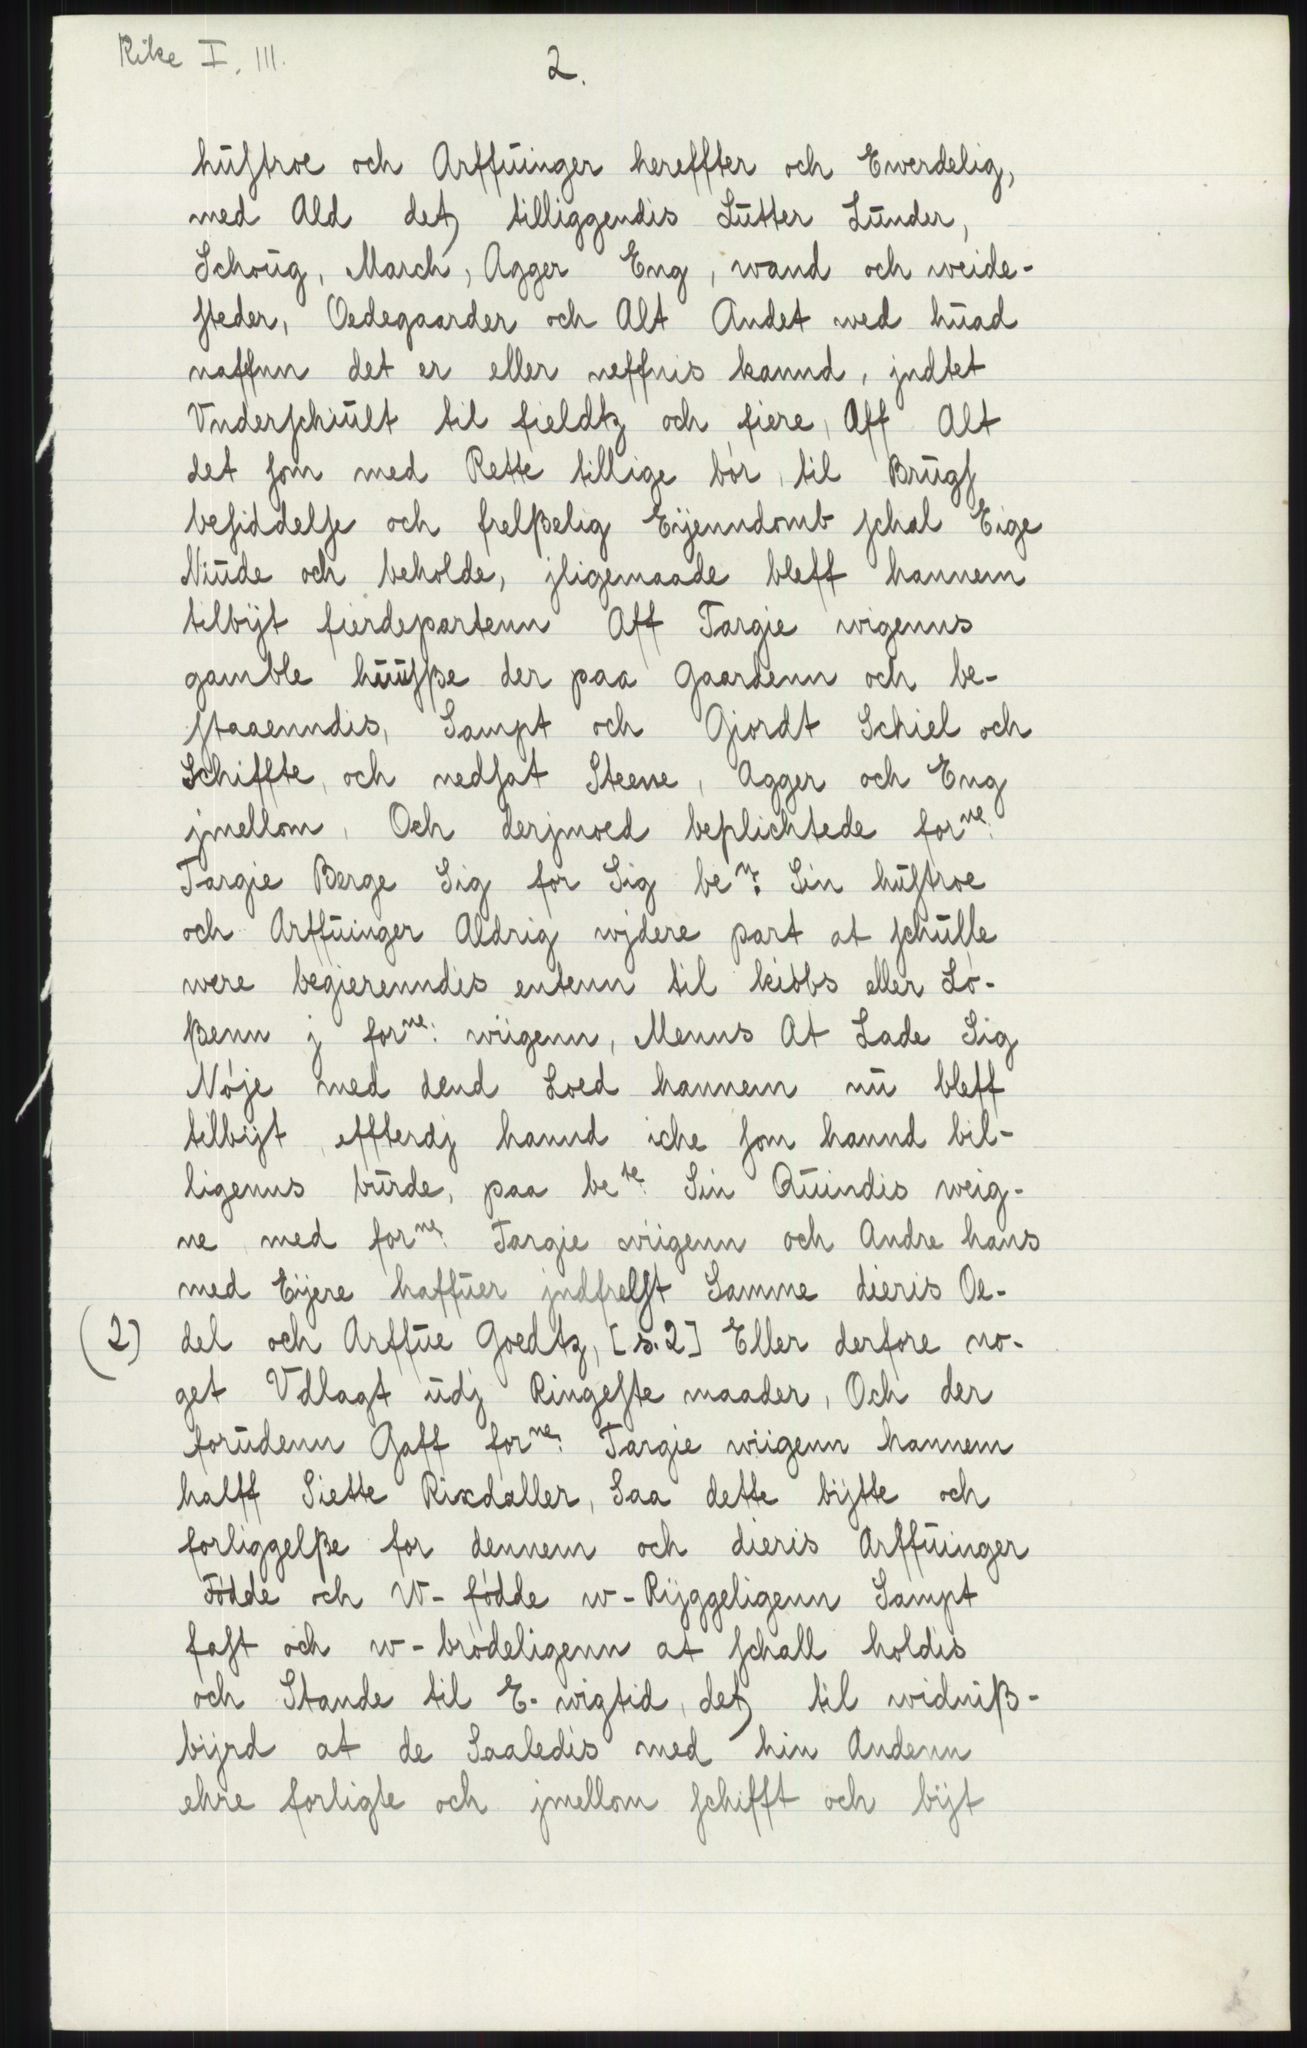 Rike I. III.
2.
hustroe och Arffuinger hereffter och Ewerdelig,
med Ald detz tilliggendis Lutter Lunder,
Schoug, March, Agger Eng, wand och weide-
steder, Oedegaarder och Alt Andet wed huad
naffnn det er eller neffnis kannd, jndtet
Vnderschiult til fieldtz och fiere, Aff Alt
det som med Rette tillige bør, til Brugs
besiddelse och frelßelig Eijenndomb schal Eige
Niude och beholde, jligemaade bleff hannem
tilbijt fierdepartenn Aff Targie wigenns
gamble huusße der paa gaardenn och be-
staaenndis, Sampt och Giordt Schiel och
Schiffte, och nedsat Steene, Agger och Eng
jmellom, Och derjmoed beplichtede for ne:
Targie Berge Sig for Sig be te: Sin hustroe
och Arffuinger Aldrig wjdere part at schulle
were begierenndis entenn til kiøbs eller Lø-
ßenn j for ne: wiigenn, Menns At Lade Sig
Nøje med dend Loed hannem nu bleff
tilbijt, effterdj hannd iche som hannd bil-
ligenns burde, paa be te: Sin Quindis weig-
ne med for ne: Targie wiigenn och Andre hans
med Eijere haffuer jndfrelst Samme dieris Oe-
(2) del och Arffue Goedtz, [s. 2] Eller derfore no-
get Vdlagt udj Ringeste maader, Och der
forudenn Gaff for ne: Targie wiigenn hannem
halff Siette Rixdaller, Saa dette bijtte och
forliggelße for dennem och dieris Arffuinger
Fødde och W-fødde w-Rijggeligenn Sampt
fast och w-brødeligenn at schall holdis
och Stande til E-wigtid, detz til widniß-
bijrd at de Saaledis med hin Andenn
ehre forligte och jmellom schifft och bijt